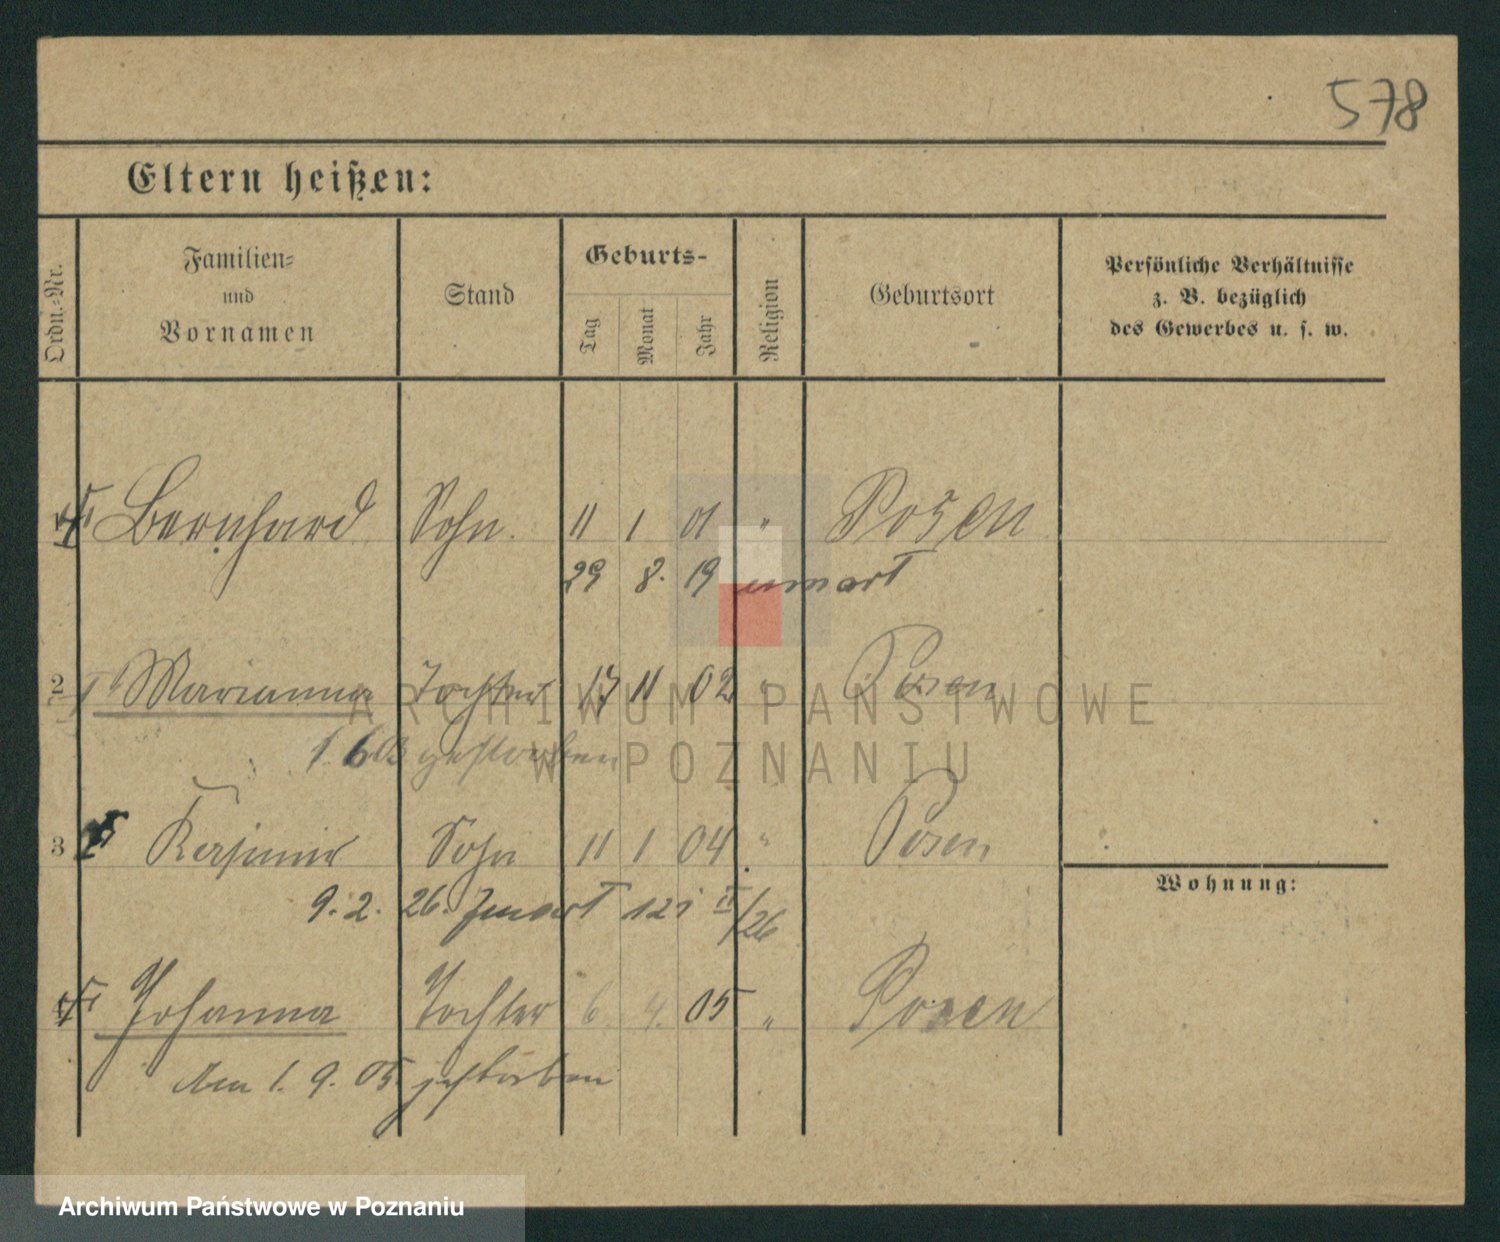 578
Eltern heißen:
Ordn.-Nr.
Familien-
und
Vornamen
Stand
Geburts-
Tag
Monat
Jahr
Religion
Geburtsort
Persönliche Verhältnisse
z. B. bezüglich
des Gewerbes u. s. w.
Bernhard Sohn. 11 1 01 " Posen
29 8. 19
2 Marianna Tochter 17 11 02 " Posen
gestorben
3 Kasimir Sohn 11 1 04 " Posen
9. 2. 26.
Wohnung:
Johanna Tochter 6 4. 05 " Posen
Am 1. 9. 05 gestorben
ARCHIWUM PAŃSTWOWE
W POZNANIU
Archiwum Państwowe w Poznaniu